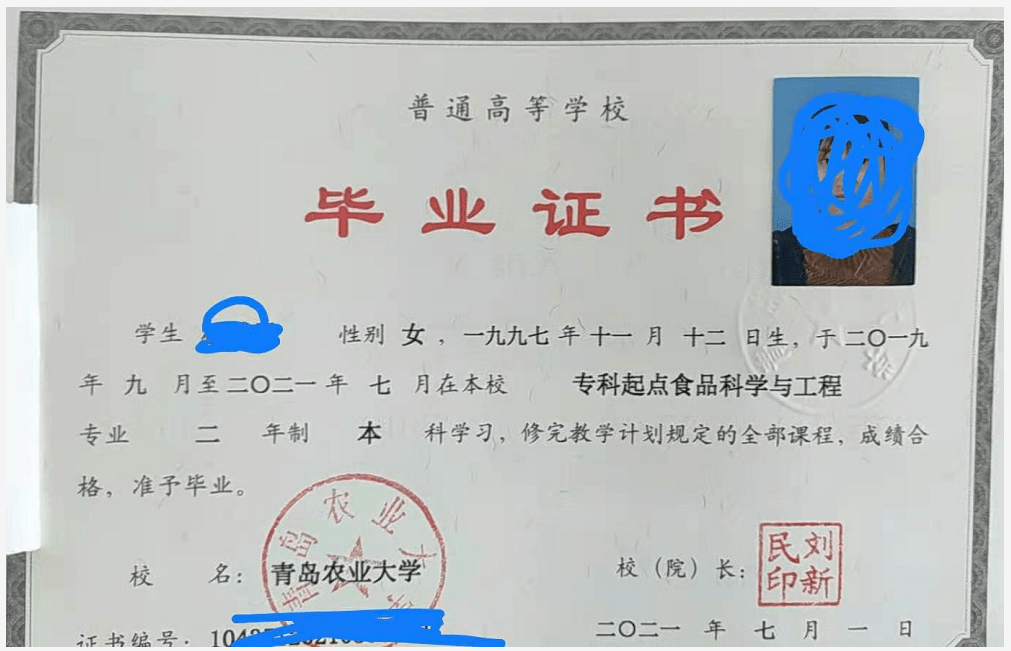 普通高等学校
毕业证书
学生 性别 女，一九九七 年 十一 月 十二 日生，于 二〇一九
年 九 月至 二〇二一 年 七 月在本校 专科起点食品科学与工程
专业 二 年制 本 科学习，修完教学计划规定的全部课程，成绩合
格，准予毕业。
青岛农业大
校 名：青岛农业大学
校（院）长：
刘新
民印
证书编号：
二〇二一 年 七 月 一 日